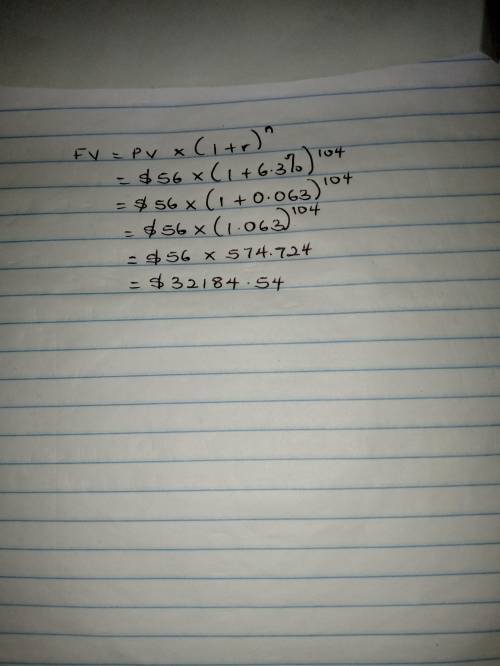 FV = PV × (1+r)^n
= $56 × (1+6.3%)^104
= $56 × (1+0.063)^104
= $56 × (1.063)^104
= $56 × 574.724
= $32184.54